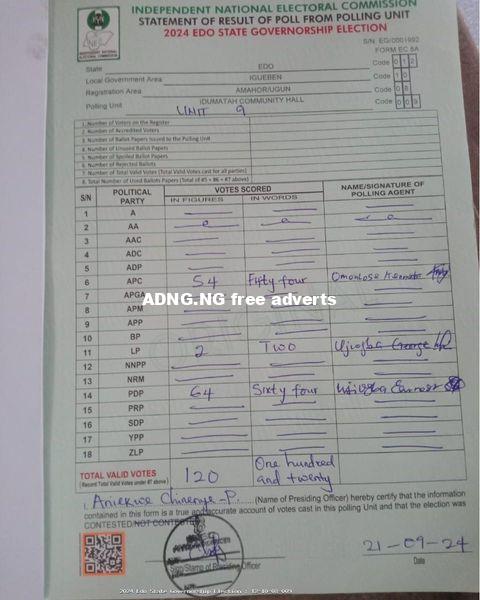 INDEPENDENT NATIONAL ELECTORAL COMMISSION
STATEMENT OF RESULT OF POLL FROM POLLING UNIT
2024 EDO STATE GOVERNORSHIP ELECTION
S/N: EG/0001992
FORM EC 8A
State EDO Code 0 1 2
Local Government Area IGUEBEN Code 1 0
Registration Area AMAHOR/UGUN Code 0 8
Polling Unit IDUMATAH COMMUNITY HALL Code 0 0 9
UNIT 9
1. Number of Voters on the Register
2. Number of Accredited Voters
3. Number of Ballot Papers Issued to the Polling Unit
4. Number of Unused Ballot Papers
5. Number of Spoiled Ballot Papers
6. Number of Rejected Ballots
7. Number of Total Valid Votes (Total Valid Votes cast for all parties)
8. Total Number of Used Ballots Papers (Total of #5 + #6 + #7 above)
S/N POLITICAL PARTY VOTES SCORED NAME/SIGNATURE OF POLLING AGENT
IN FIGURES IN WORDS
1 A
2 AA
3 AAC
4 ADC
5 ADP
6 APC 54 Fifty four
7 APGA
8 APM
ADNG.NG free adverts
9 APP
10 BP
11 LP 2 Two Ujiogba George
12 NNPP
13 NRM
14 PDP 64 Sixty four
15 PRP
16 SDP
17 YPP
18 ZLP
TOTAL VALID VOTES 120 One hundred and twenty
(Record Total Valid Votes under #7 above)
I, Aniekwe Chinenye-P. (Name of Presiding Officer) hereby certify that the information
contained in this form is a true and accurate account of votes cast in this polling Unit and that the election was
CONTESTED/NOT CONTESTED
21-09-24
Sign/Stamp of Presiding Officer
Date
2024 Edo State Governorship Election